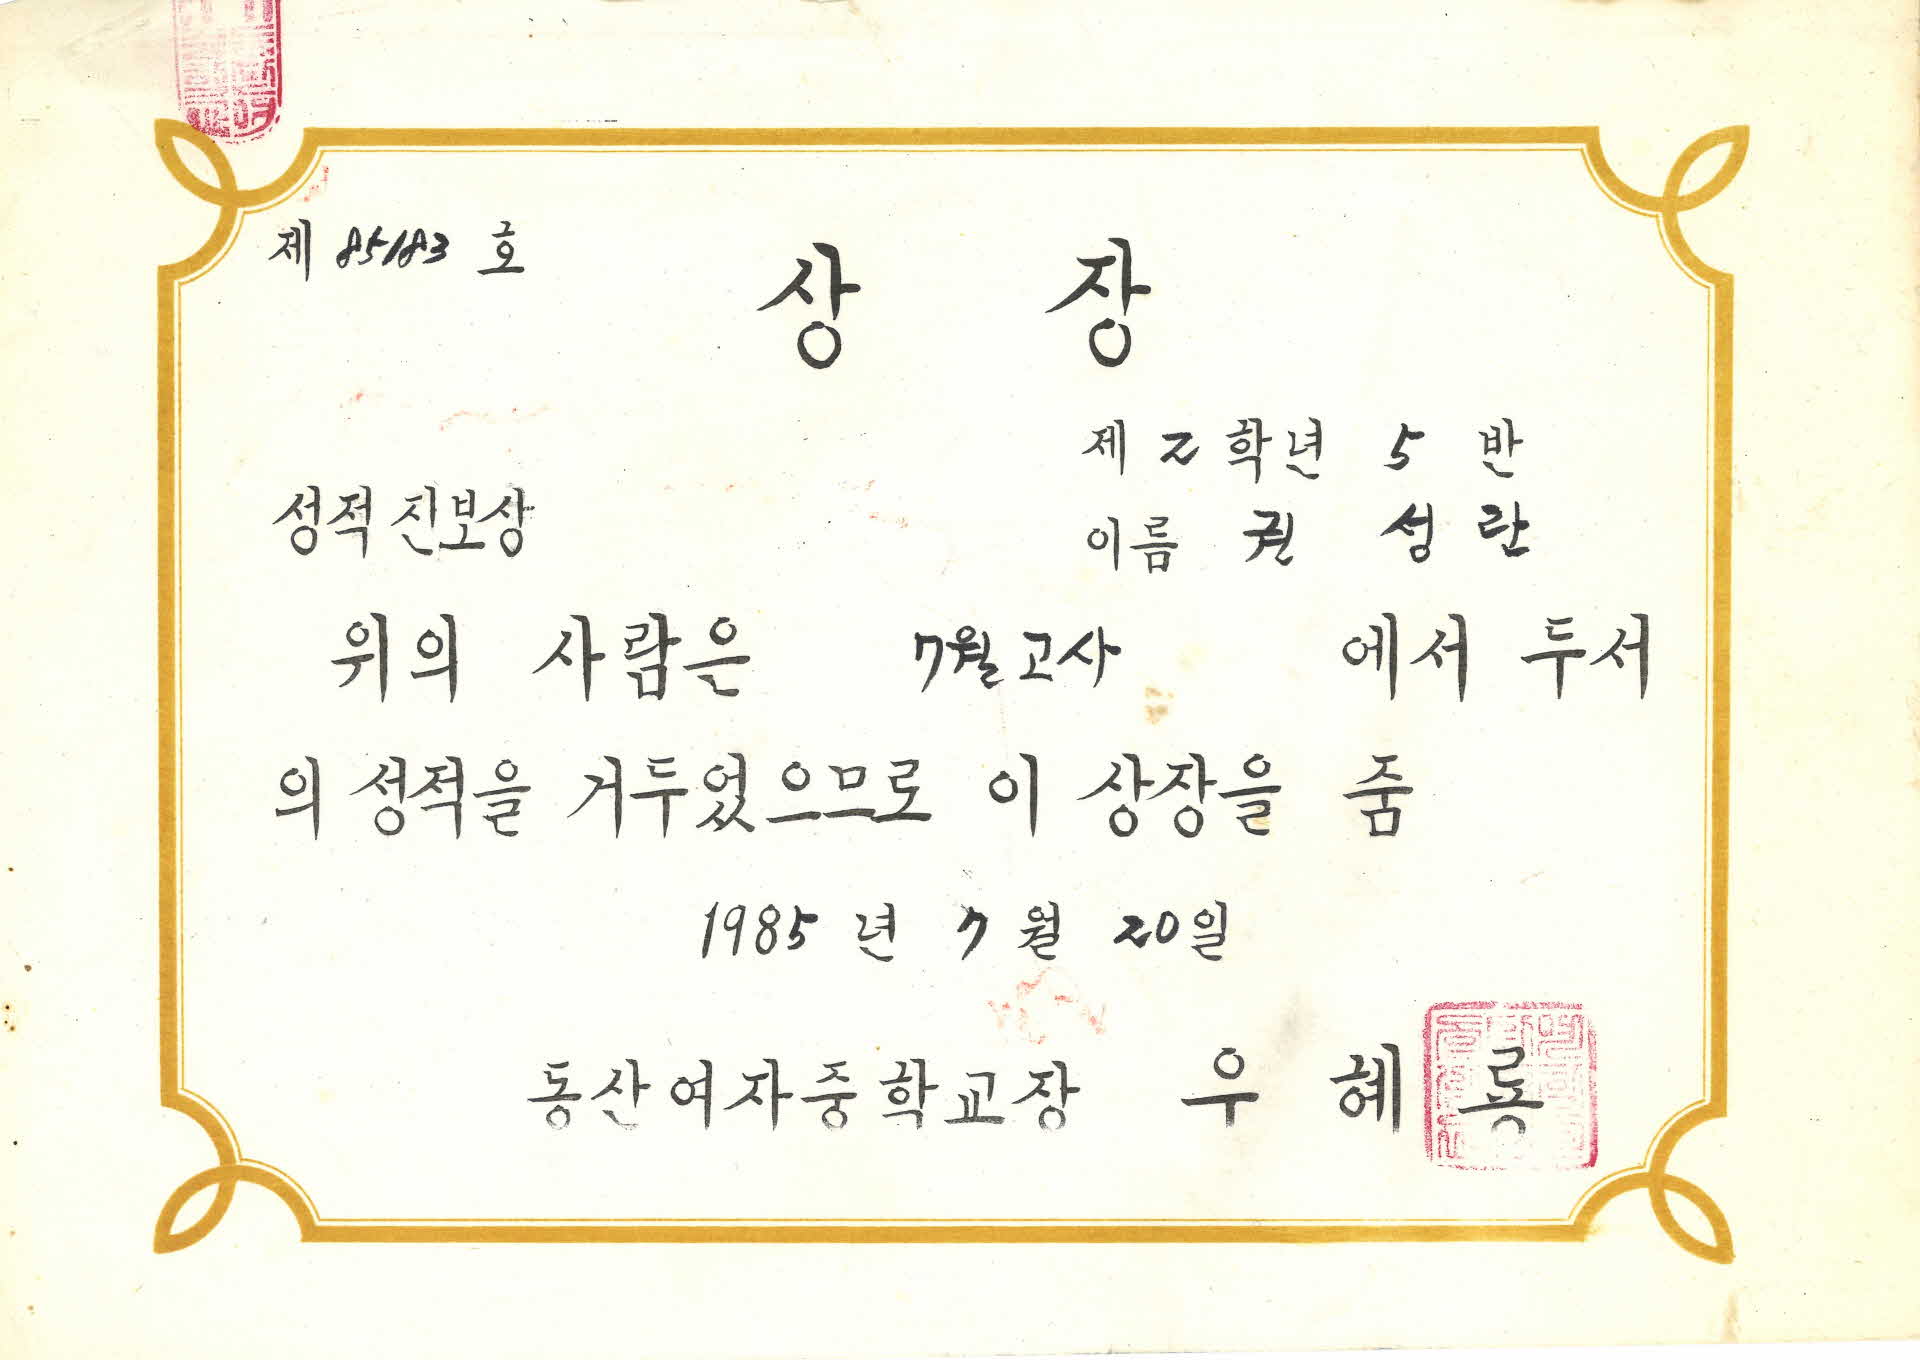 제 85183 호
상 장
제 2 학년 5 반
성적 진보상
이름 권 성 란
위의 사람은 7월 고사 에서 두서
의 성적을 거두었으므로 이 상장을 줌
1985 년 7 월 20 일
동산여자중학교장 우 혜 룡